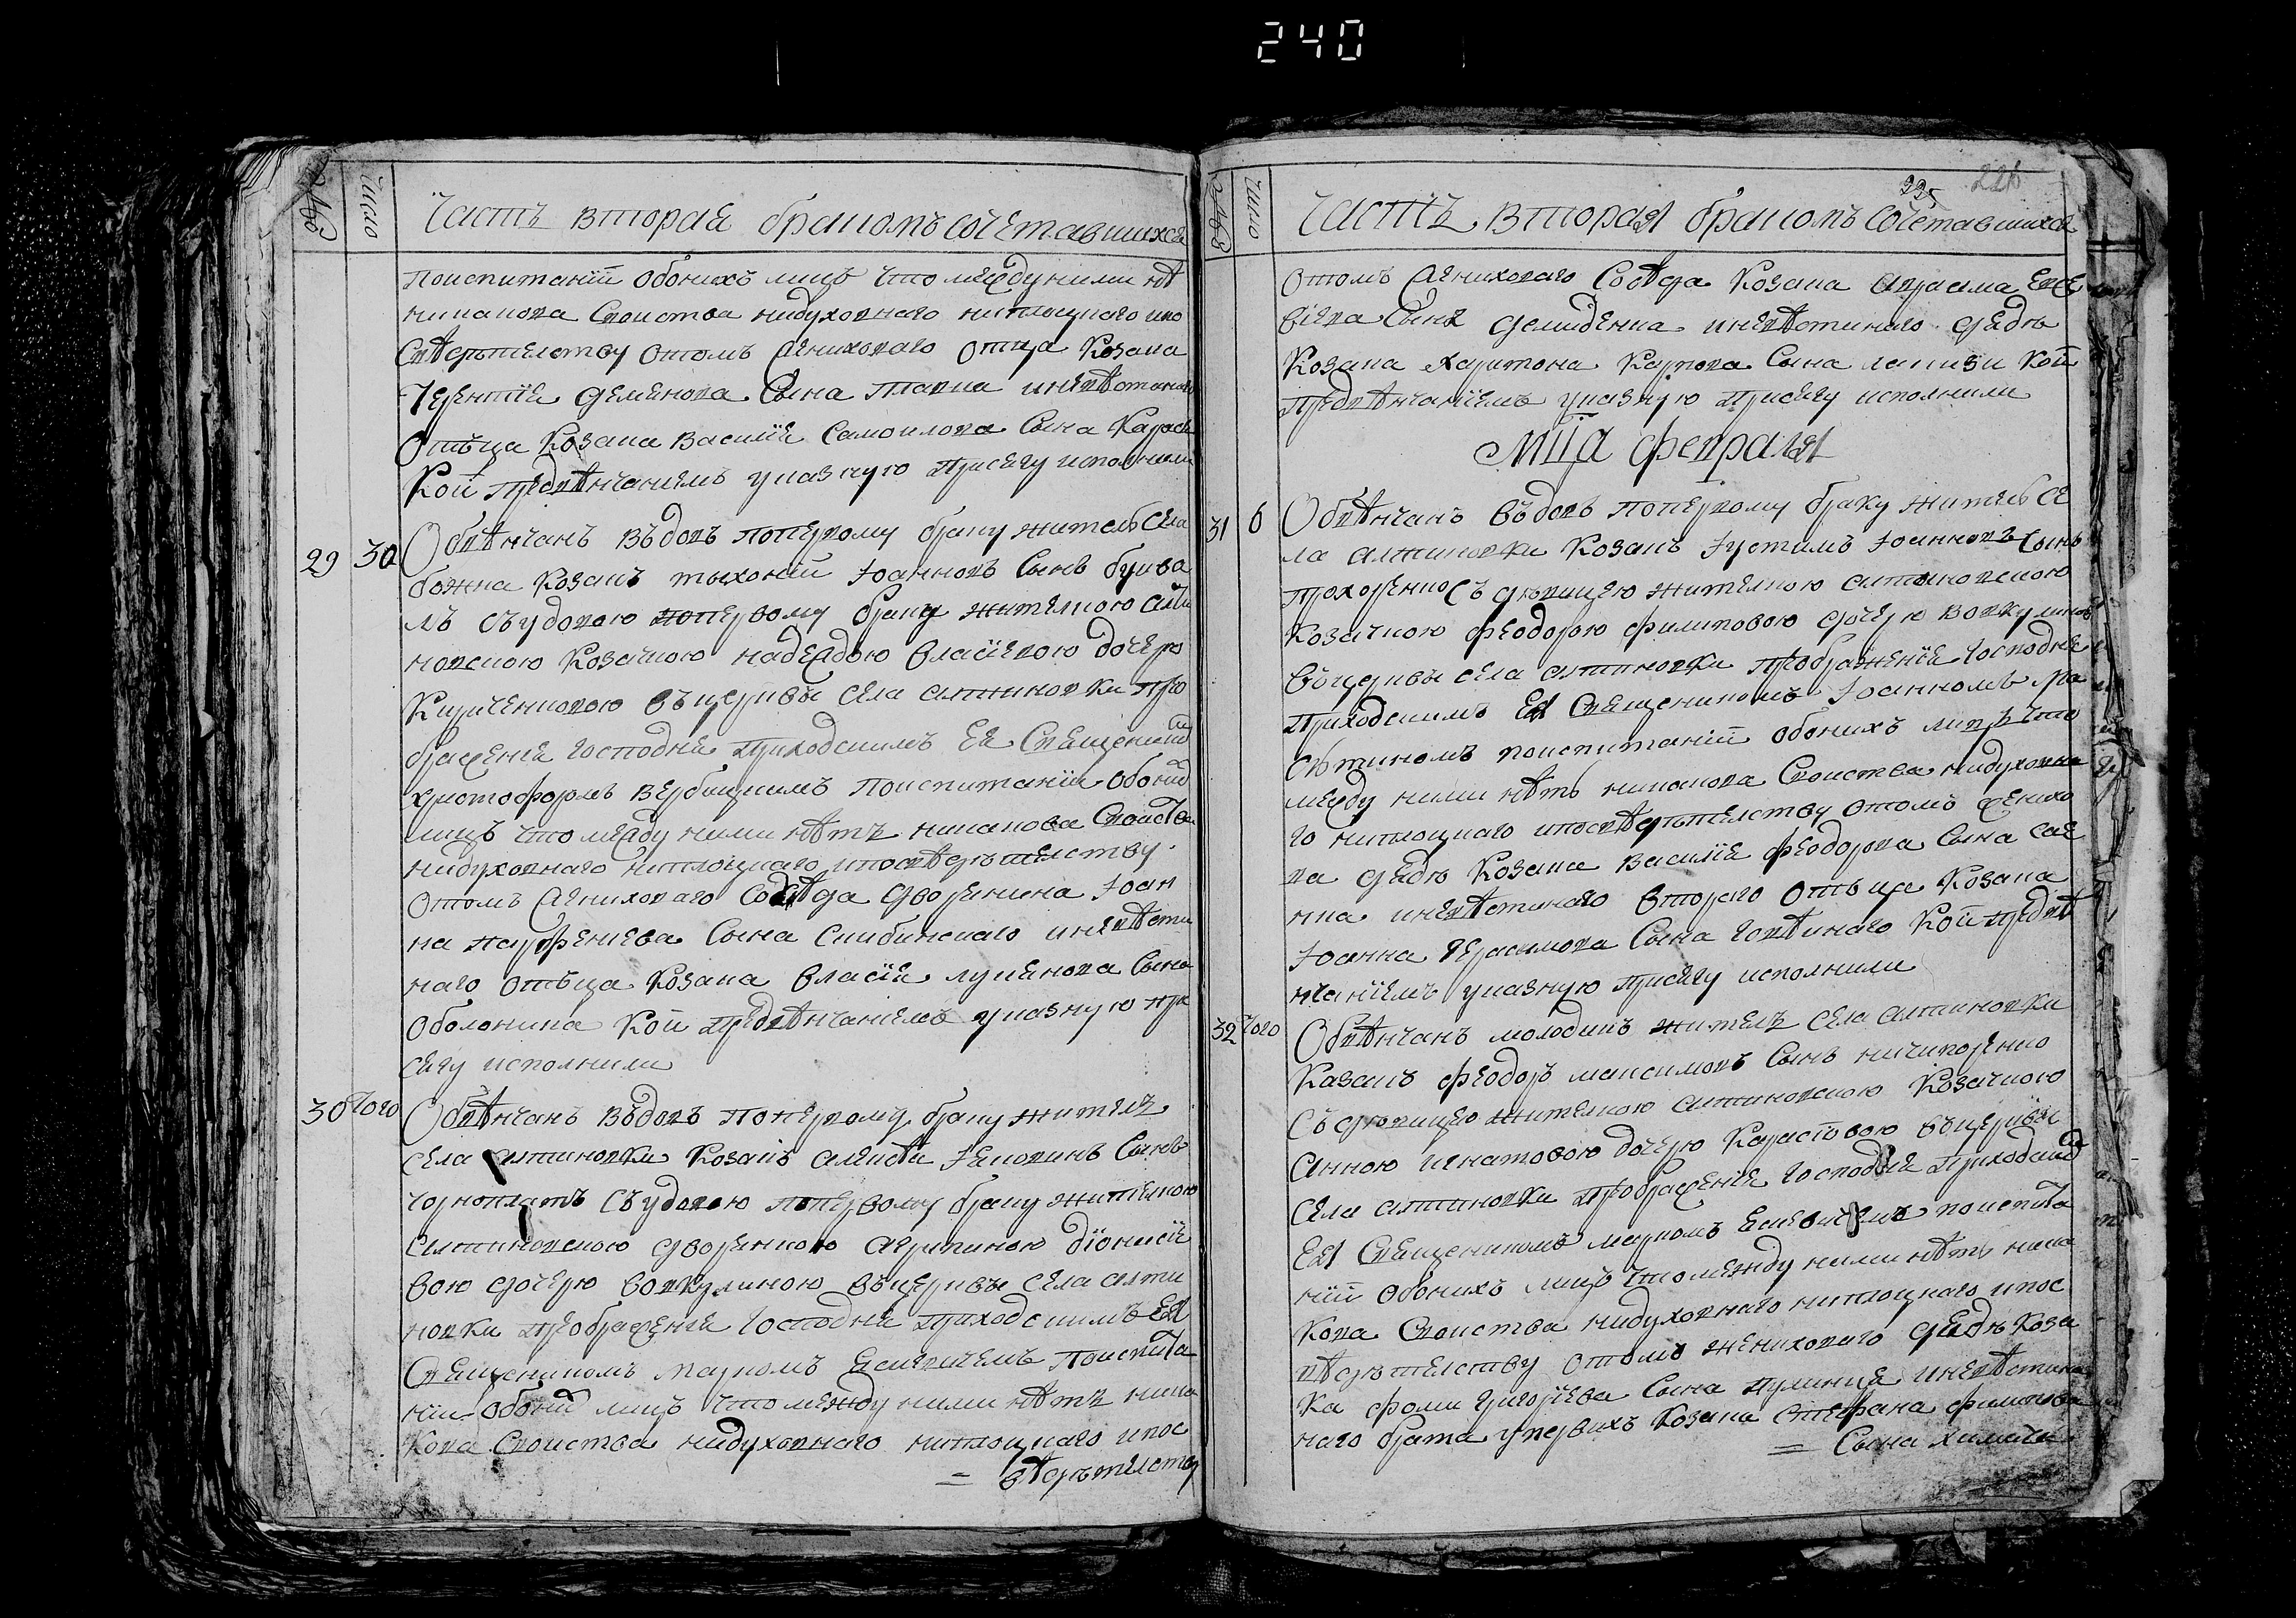 240
Число
Часть вторая бракомъ сочетавшихся
поиспитаніи обоихъ лицъ что между ними нѣ
никакова своиства нидуховнаго ниплоцкаго ипо
свѣдѣтелству отомъ жениховаго отца козака
Терентія Семенова сына
отъца козака василія самоилова сына
кои предвѣнчаниемъ указную присягу исполнили
29 30 Обвѣнчанъ въдовъ попервому браку житель села
божка козакъ тихоній Іоанновъ сынъ
съудовою попервому браку жителкою алти
новскою козачкою надеждою власіевою дочерю
Кириченковою въцеркви села алтиновки прео
браженія господня приходскимъ ея священико
христофоромъ вербицкимъ поиспитаніи обоих
лицъ что между ними нѣтъ никакова своиства
нидуховнаго ниплоцкаго ипосвѣдѣтелству
отомъ жениховаго сосѣда дворянина Іоан
на парфенієва сына скибинскаго иневѣсти
наго отъца козака власія лукянова сына
оболоника кои предвѣнчаниемъ указную при
сягу исполнили
30 того Обвѣнчанъ въдовъ попервому браку житель
села алтиновки козакъ алексѣи сынъ
съудовою попервому браку жителкою
алтиновскою дворянкою агрипиною діонисіе
вою дочерю вовкулиною въцеркви села алти
новки преображенія господня приходскимъ ея
священикомъ маркомъ поиспита
ніи обоих лицъ что между ними нѣтъ ника
кова своиства нидуховнаго ниплоцкаго ипос
= вѣдѣтелству
Число
225 226
Часть вторая бракомъ сочетавшихся
отомъ жениховаго сосѣда козака
сына демиденка иневѣстинаго дядѣ
козака харитона карпова сына кои
предвѣнчаніемъ указную присягу исполнили
Мца февраля
31 6 Обвѣнчанъ въдовъ попервому браку житель се
ла алтиновки козакъ Іустимъ Іоанновъ сынъ
прохоренко съ дѣвицею жителкою алтиновскою
козачкою феодорою филиповою дочерю
въцеркви села алтиновки преображенія господня
приходскимъ ея священикомъ Іоанномъ
поиспитаніи обоихъ лицъ что
между ними нѣтъ никакова своиства нидуховна
го ниплоцкаго ипосвѣдѣтелству отомъ женихо
ва дядѣ козака василія феодорова сына сав
ка иневѣстинаго второго отъца козака
Іоанна герасимова сына кои предвѣ
нчаніемъ указную присягу исполнили
32 того Обвѣнчанъ молодикъ житель села алтиновки
казакъ феодоръ максимовъ сынъ ничипоренко
съдѣвицею жителкою алтиновскою козачкою
анною игнатовою дочерю въцеркви
села алтиновки преображенія господня приходским
ея священикомъ маркомъ поиспита
ніи обоихъ лицъ что между ними нѣтъ ника
кова своиства нидуховнаго ниплоцкаго ипос
вѣдѣтелству отомъ жениховаго дядѣ коза
ка фоми григоріева сына иневѣстин
наго брата упервихъ козака стефана филипова
= сына